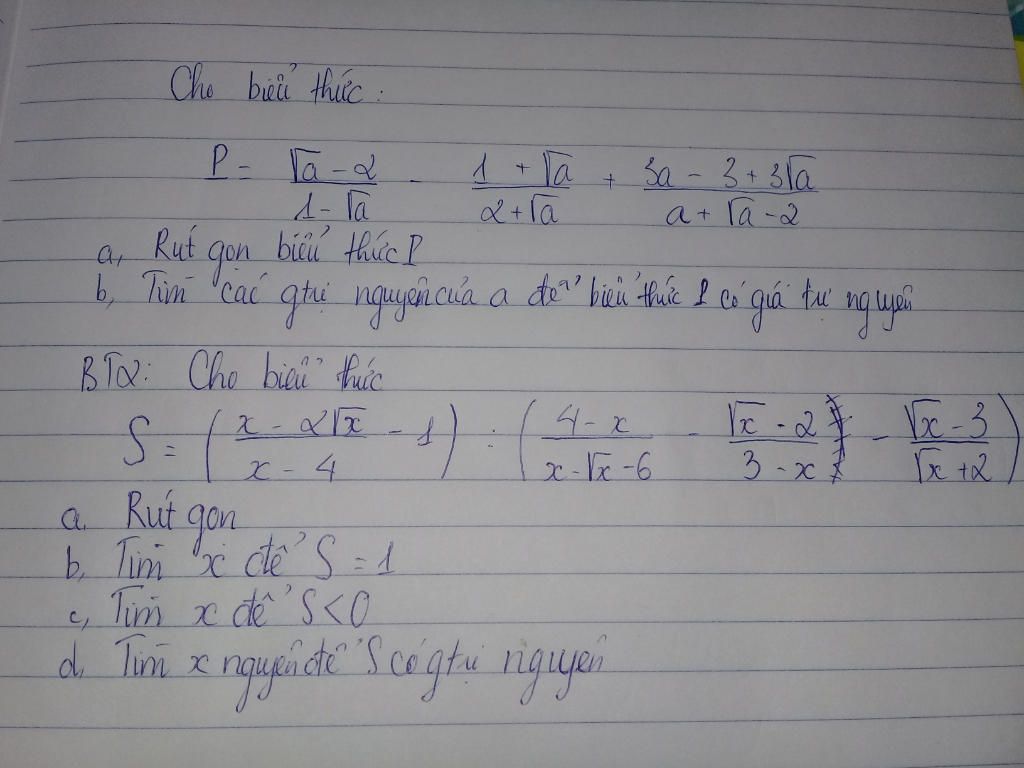 Cho biểu thức:
P = (√a - 2)/(1 - √a) - (1 + √a)/(2 + √a) + (3a - 3 + 3√a)/(a + √a - 2)
a, Rút gọn biểu thức P
b, Tìm các gtrị nguyên của a để biểu thức P có giá trị nguyên
BT2: Cho biểu thức
S = ((x - 2√x)/(x - 4) - 1) : ((4 - x)/(x - √x - 6) - (√x - 2)/(3 - x) - (√x - 3)/(√x + 2))
a. Rút gọn
b, Tìm x để S = 1
c, Tìm x để S < 0
d. Tìm x nguyên để S có gtrị nguyên